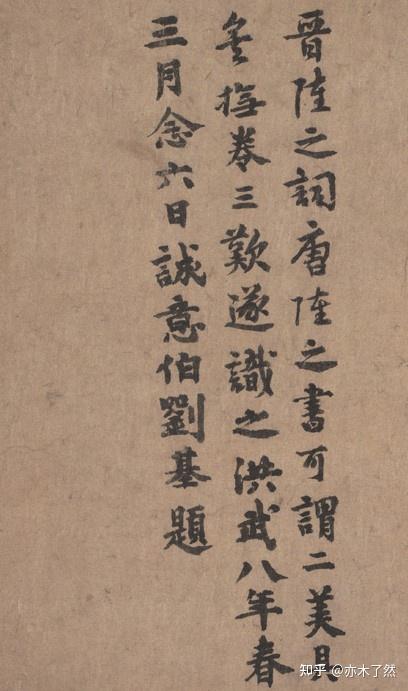 晉陸之詞唐陸之書可謂二美具
矣撫卷三歎遂識之洪武八年春
三月念六日誠意伯劉基題
知乎 @亦木了然